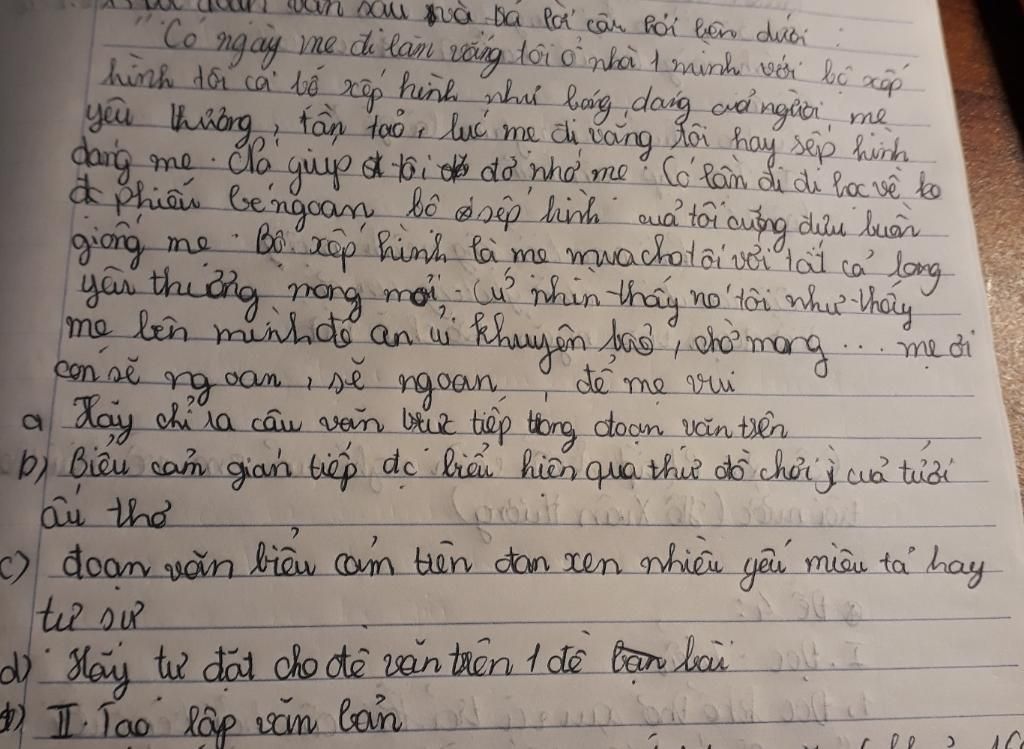 đoạn văn sau và trả lời câu hỏi bên dưới :
"Có ngày mẹ đi làm vắng tôi ở nhà 1 mình với bộ xếp
hình tôi cả bộ xếp hình như bóng dáng của người mẹ
yêu thương, tần tảo, lúc mẹ đi vắng tôi hay sếp hình
dáng mẹ. Nó giúp tôi đỡ nhớ mẹ Có lần đi đi học về ko
đc phiếu bé ngoan bộ sếp hình của tôi cũng dừu buồn
giống mẹ. Bộ xếp hình là mẹ mua cho tôi với tất cả lòng
yêu thương mong mỏi. Cứ nhìn thấy nó tôi như thấy
mẹ bên mình để an ủi khuyên bảo, chờ mong ... mẹ ơi
con sẽ ngoan, sẽ ngoan, để mẹ vui
a Hãy chỉ ra câu văn trực tiếp trong đoạn văn trên
b) Biểu cảm gián tiếp đc biểu hiện qua thứ đồ chơi j của tuổi
ấu thơ
c) đoạn văn biểu cảm trên đan xen nhiều yếu miêu tả hay
tự sự
d) Hãy tự đặt cho đề văn trên 1 đề bài
II. Tạo lập văn bản